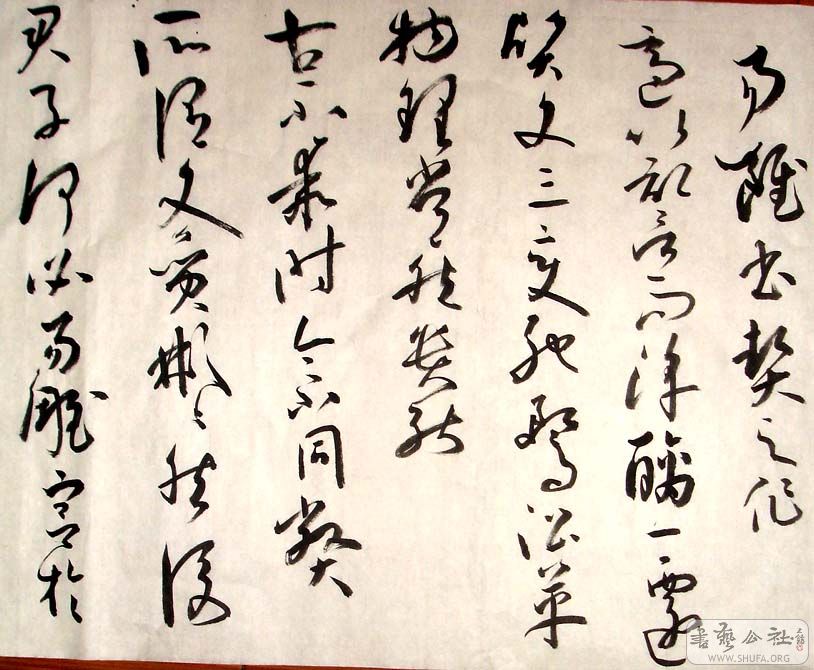 易雖書契之作
適以記言而淳醨一遷
質文三變馳鶩沿革
物理常然貴能
古不乖時今不同弊
所謂文質彬々然後
君子何必易雕宮於
書藝公社
WWW.SHUFA.ORG